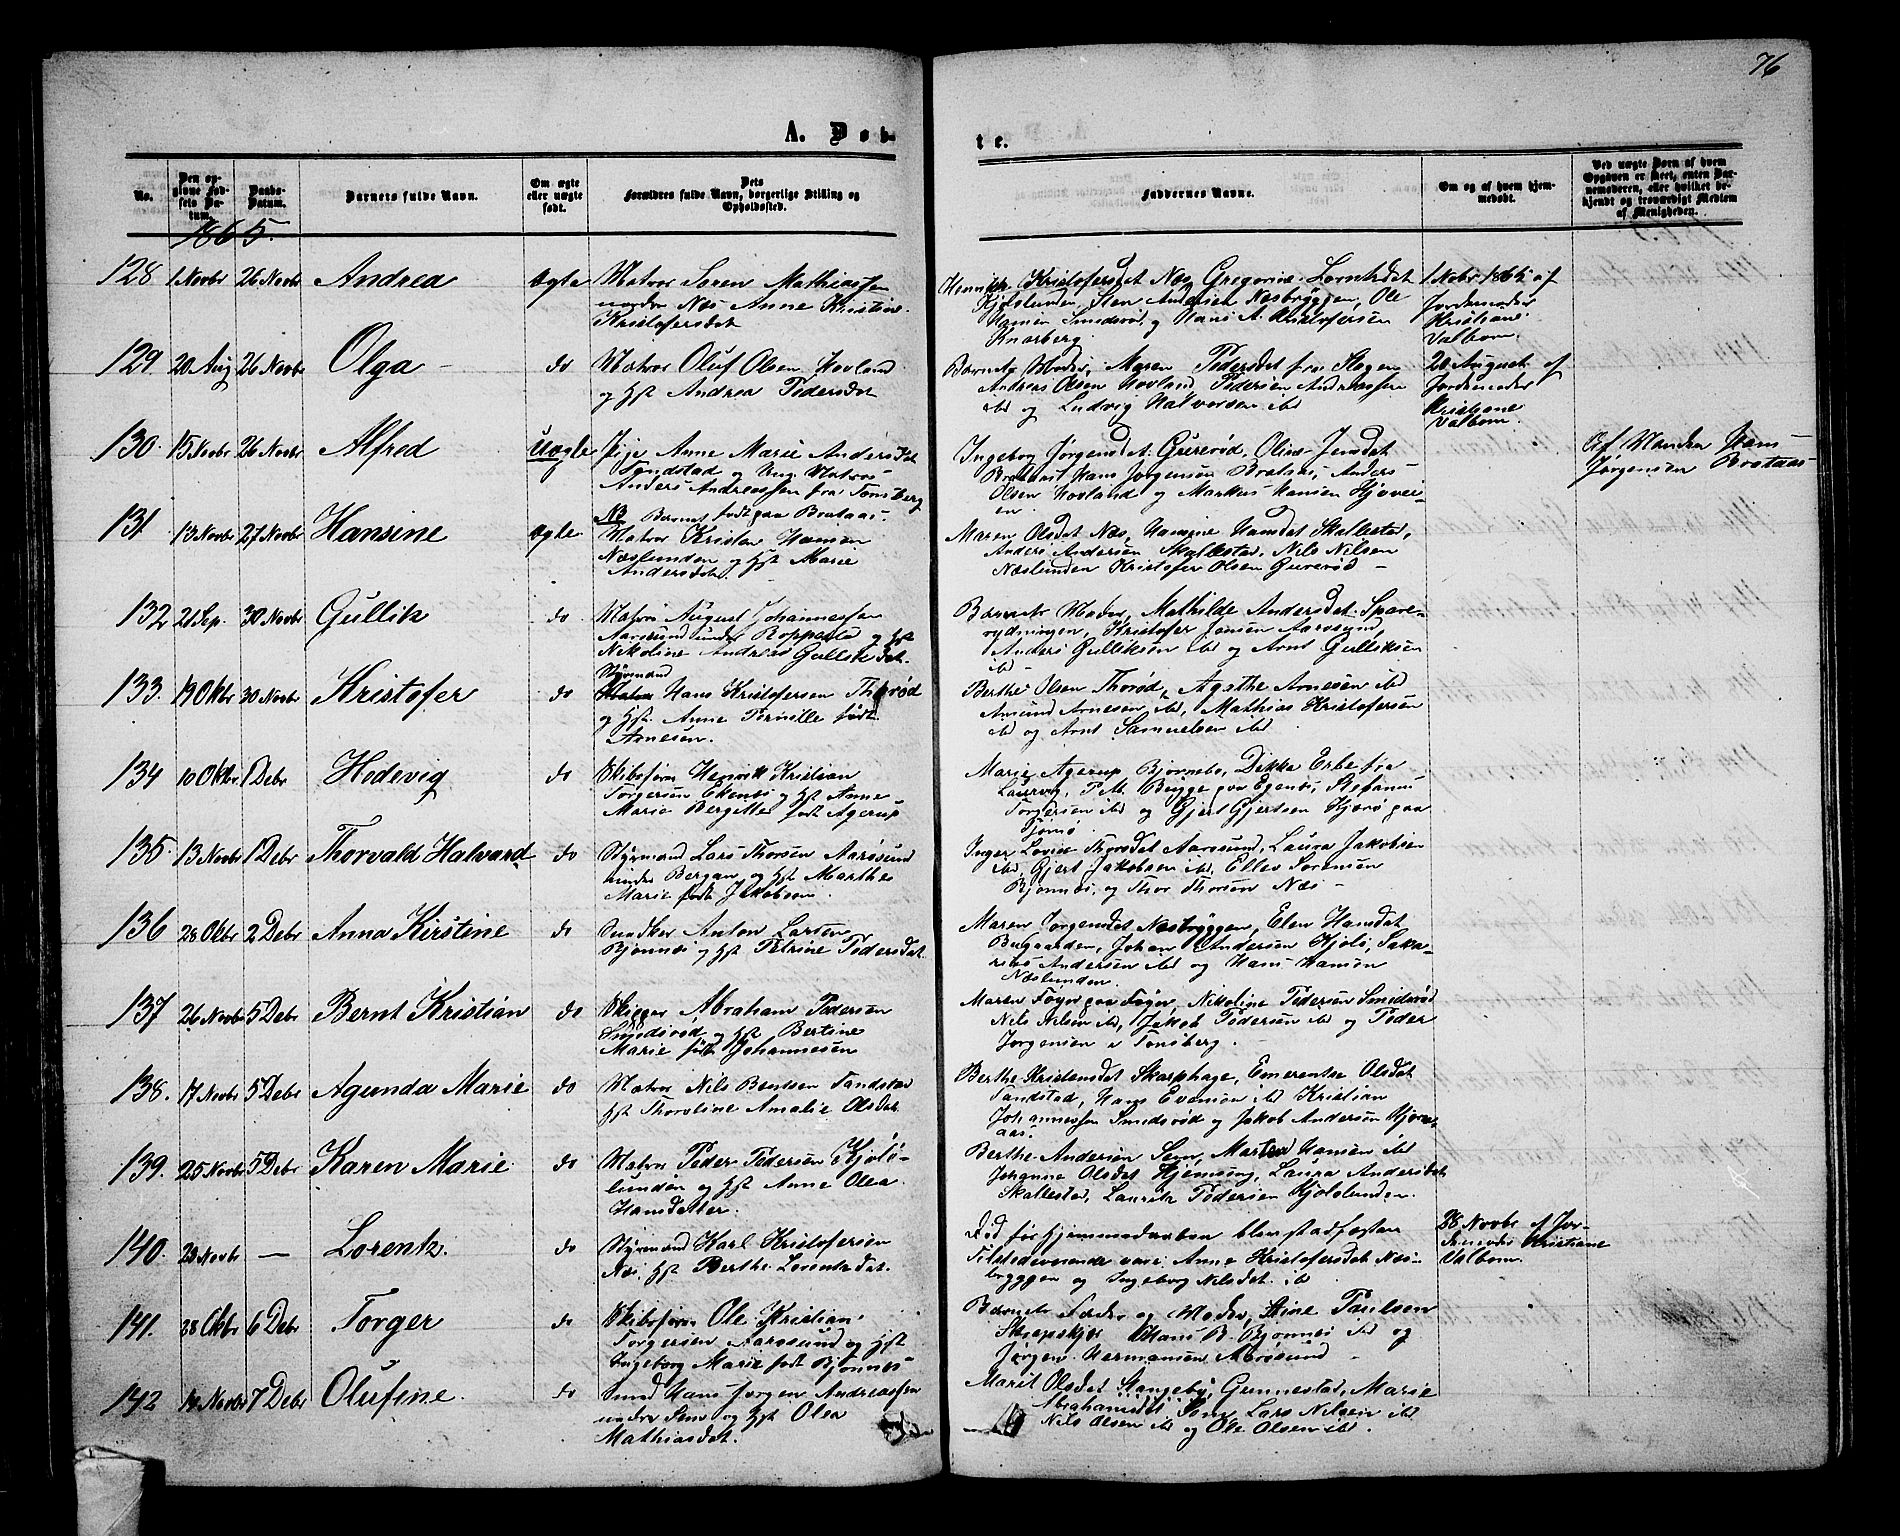 76
A. Døb-
te.
No.
Den op-
givne Fød-
sels Da-
tum.
Daabs-
Datum.
Barnets fulde Navn.
Om ægte
eller uægte
født.
Dets
Forældres fulde Navn, borgerlige Stilling og
Opholdssted.
Faddernes Navne.
Om og af hvem hjem-
medøbt.
Ved uægte Børn af hvem
Opgaven er skeet, enten Bar-
nemoderen, eller hvilket be-
kjendt og troværdigt Medlem
af Menigheden.
1865.
128 1 Novbr 26 Novbr Andrea ægte
Matros Søren Mathiassen
nordre Næs Anne Kristine
Kristofersdat
Kristofersdat Næs, Gregorie Lorntsdat
Næsbryggen, Ole
Hansen Smidsrød, og Hans A. Kristofersen
Knarberg.
1 Nobr 1865 af
Jordemoder
Kristiane
Valbom.
129. 20 Aug 26 Novbr Olga do
Matros Oluf Olsen Hovland
og Hst Andrea Pedersdat
Barnets Moder, Maren Pedersdat fra Slagen
Andreas Olsen Hovland, Pedersen Andreassen
ibd og Ludvig Halvorsen ibd
20 August af
Jordemoder
Kristiane
Valbom.
130. 15 Novbr 26 Novbr Alfred Uægte
Pige Anne Marie Andersdat
Sandstad og Ung. Matros
Anders Andreassen fra Tønsberg
NB Barnet født paa Brataas.
Ingebog Jørgensdat Gurerød, Oline Jensdat
Brataas, Hans Jørgensen Brataas, Anders
Olsen Hovland og Markus Hansen Hjove-
en
Af Manden Hans
Jørgensen Brataas
131 13 Novbr 27 Novbr Hansine ægte
Matros Kristen Hansen
Næslunden og Hst Marie
Andersdat.
Maren Olsdat Næs, Hansine Hansdat Skallestad,
Anders Andersen Skallestad, Nils Nilsen
Næslunden Kristofer Olsen Gurerød
132 21 Sep. 30 Novbr Gullik do
Matros August Johannessen
Aarøsund under Roppestad og Hst
Nikoline Andrea Gulliksdat.
Barnets Moder, Mathilde Andersdat Spare-
rydningen, Kristofer Jensen Aarøsund,
Anders Gulliksen ibd og Arnt Gulliksen
ibd
133. 19 Oktbr 30 Novbr Kristofer do
Styrmand
Matros Hans Kristofersen Thorød
og Hst. Anne Pernille født
Arnesen.
Berthe Olsen Thorød, Agathe Arnesen ibd
Amund Arnesen ibd, Mathias Kristofersen
ibd og Arnt Samuelsen ibd
134 10 Oktbr 1 Debr Hedevig do
Skibsfører Henrik Kristian
Torgersen Ekenes og Hst Anne
Marie Bergitte født Agerup
Marie Agerup Bjørnebo, Dikka Erbe fra
Laurvig, P. M. Bugge paa Egenes, Stefanus
Torgersen ibd og Gjert Gjertsen Kjærø paa
Tjømø.
135. 13 Novbr 1 Debr Thorvald Halvard do
Styrmand Lars Thorsen Aarøsund
under Bergan og Hst Marthe
Marie født Jakobsen.
Inger Lovise Thorsdat Aarøsund, Laura Jakobsen
ibd, Gjert Jakobsen ibd, Ellev Sørensen
Bjønnes, og Thor Thorsen Næs
136 28 Oktbr 2 Debr Anna Kirstine do
Snedker Anton Larsen
Bjønnes og Hst Petrine Pedersdat.
Maren Jørgensdat Næsbryggen, Elen Hansdat
Bugaarden, Johan Andersen Kjøle, Saka-
rias Andersen ibd og Hans Hansen
Næslunden.
137 26 Novbr 5 Debr Bernt Kristian do
Skipper Abraham Pedersen
Smidsrød og Hst Bertine
Marie født Johannesen
Maren Føyn paa Føyn, Nikoline Pedersen Smidsrød
Nils Nilsen ibd, Jakob Pedersen ibd og Peder
Jørgensen i Tønsberg.
138. 17 Novbr 5 Debr Agunda Marie do
Matros Nils Bentsen Sandstad
Hst Thoroline Amalie Olsdat
Berthe Kristensdat Skarphage, Emerentse Olsdat
Sandstad, Hans Evensen ibd Kristian
Johannessen Smidsrød og Jakob Andersen
139. 25 Novbr 5 Debr Karen Marie do
Matros Peder Pedersen Kjøle-
lunden og Hst Anne Olea
Hansdatter.
Berthe Andersen Sem, Marten Hansen ibd
Johanne Olsdat Hjemseng, Laura Andersdat
Skallestad, Lauritz Pedersen Kjølelunden.
140. 28 Novbr — Lorentz. do
Styrmand Karl Kristofersen
Næs, Hst Berthe Lorentzdat.
Død før Hjemmedaaben blev stadfæstet
Tilstedeværende vare: Anne Kristofersdat Næs-
bryggen og Ingeborg Nilsdat ibd
28 Novbr af Jor-
demoder Kristiane
Valbom.
141. 28 Oktbr 6 Debr Torger do
Skibsfører Ole Kristian
Torgersen Aarøsund og Hst
Ingeborg Marie født Bjønnes
Barnets Fader og Moder, Stine Paulsen
Hans B. Bjønnes ibd og
Jørgen Hermansen Aarøsund
142 14 Novbr 7 Debr Olufine. do
Smed Hans Jørgen Andreassen
under Sem og Hst Olea
Mathiasdat.
Marit Olsdat Stangeby, Gunnestad, Marie
Abrahamsdat Sem, Lars Nilsen ibd
Nils Olsen ibd og Ole Olsen ibd.